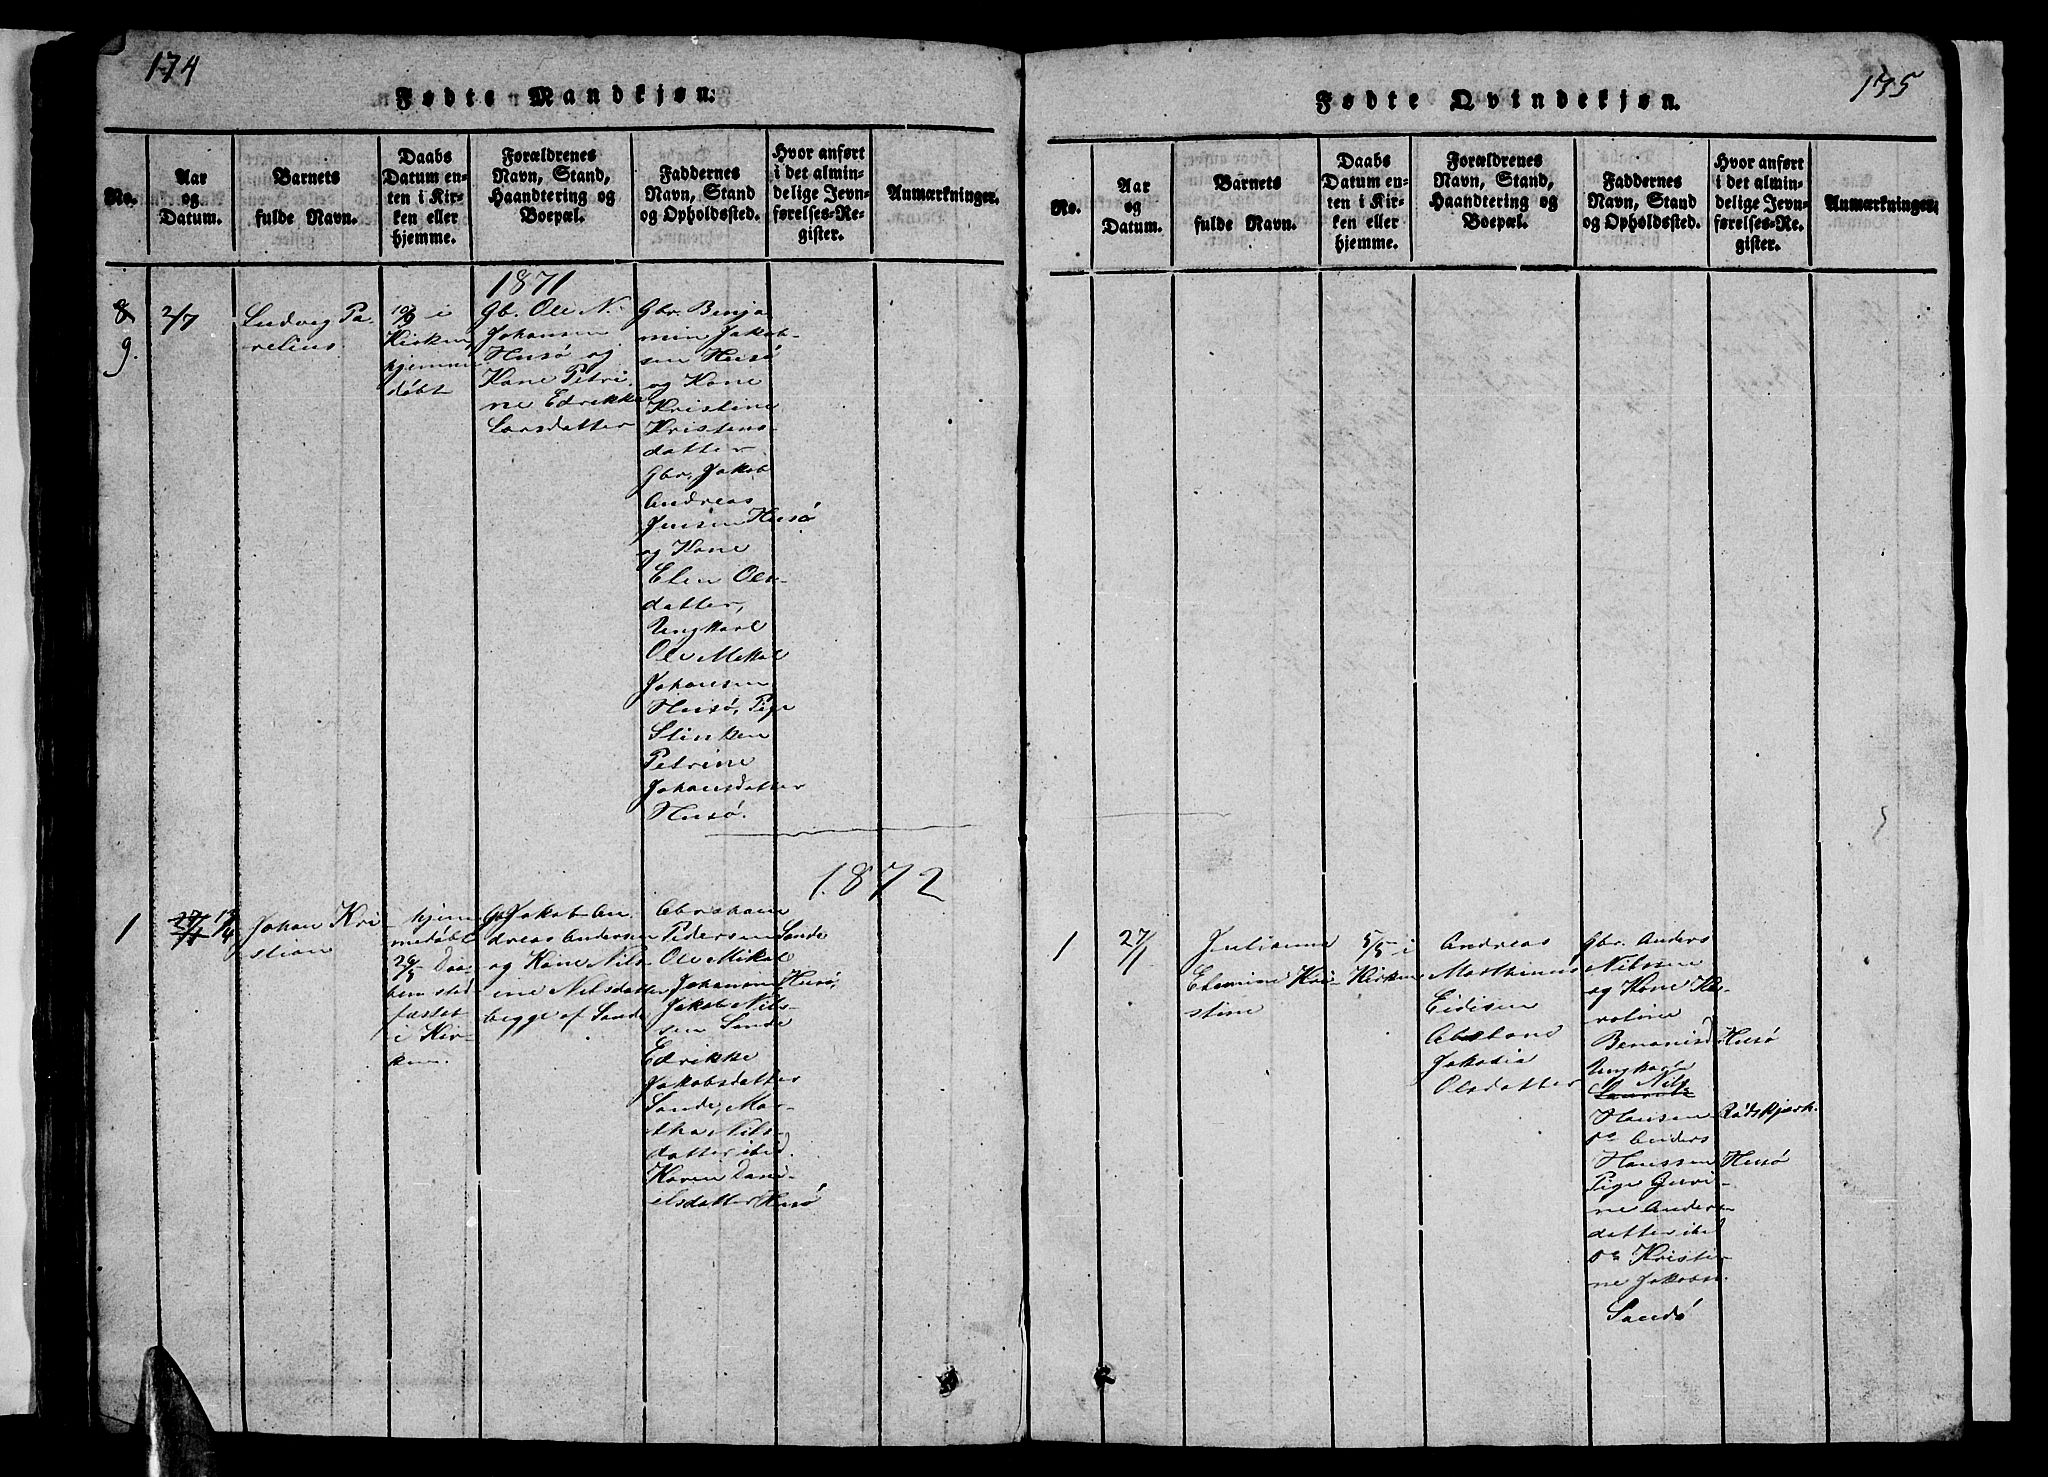 174
Fødte Mandkjøn.
No.
Aar
og
Datum.
Barnets
fulde Navn.
Daabs
Datum en-
ten i Kir-
ken eller
hjemme.
Forældrenes
Navn, Stand,
Haandtering og
Boepæl.
Faddernes
Navn, Stand
og Opholdssted.
Hvor anført
i det almin-
delige Jevn-
førelses-Re-
gister.
Anmærkninger.
1871
8
9.
2/7
Ludvig Pa-
relius
10/9 i
Kirken
hjemme
døbt
Gb. Ole N.
Johansen
Husø og
Kone Petri
ne Edrikke
Larsdatter
Gbr. Benja
min Jakob-
sen Husø
og Kone
Kristine
Kristens-
datter
Gbr. Jakob
Andreas
Jensen Husø
og Kone
Elen Ols-
datter,
Ungkarl
Ole Mikal
Johansen
Husø, Pige
Petrine
Johansdatter
Husø.
1872
1
27/1 19/4
Johan Kri
stian
hjem
medøbt
Daa-
ben stad
fæstet
i Kir-
ken
Jakob An
dreas Andersen
og Kone Nils
ine Nilsdatter
begge af Sande
Abraham
Pedersen Sande
Ole Mikal
Johansen Husø,
Jakob Nils-
sen Sande
Edrikke
Jakobsdatter
Sande, Mar-
tha Nils-
datter ibid.
Karen Dani-
elsdatter Husø
135
Fødte Qvindekjøn.
No.
Aar
og
Datum.
Barnets
fulde Navn.
Daabs
Datum en-
ten i Kir-
ken eller
hjemme.
Forældrenes
Navn, Stand,
Haandtering og
Boepæl.
Faddernes
Navn, Stand
og Opholdssted.
Hvor anført
i det almin-
delige Jevn-
førelses-Re-
gister.
Anmærkninger.
1
27/1
Julianna
Elemine Kri-
stine
5/5 i
Kirken
Andreas
Marthinus
Eidisen
Jakobia
Olsdatter
Gbr. Anders
Nilssen
og Kone Ka-
roline
Benonisd Husø
Ungkarl
Nils
Hansen Rødskjær
Anders
Hanssen Husø
Pige Guri-
ne Anders-
datter ibd
Kristi-
ne Jakobs.
Sandø